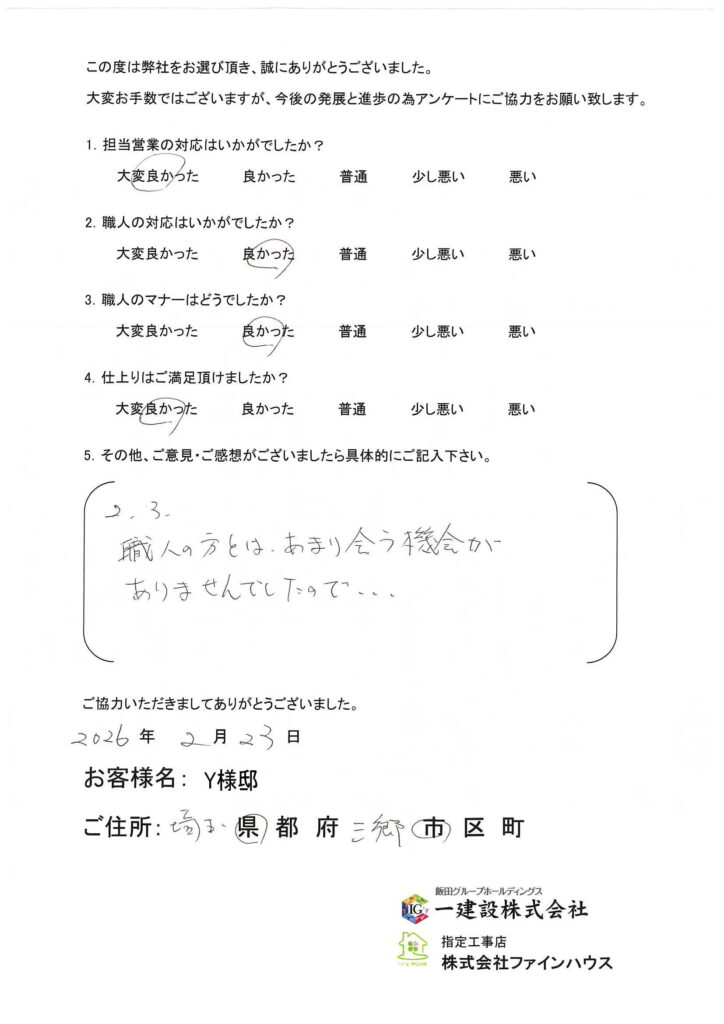 この度は弊社をお選び頂き、誠にありがとうございました。
大変お手数ではございますが、今後の発展と進歩の為アンケートにご協力をお願い致します。
1. 担当営業の対応はいかがでしたか？
大変良かった 良かった 普通 少し悪い 悪い
2. 職人の対応はいかがでしたか？
大変良かった 良かった 普通 少し悪い 悪い
3. 職人のマナーはどうでしたか？
大変良かった 良かった 普通 少し悪い 悪い
4. 仕上りはご満足頂けましたか？
大変良かった 良かった 普通 少し悪い 悪い
5. その他、ご意見・ご感想がございましたら具体的にご記入下さい。
2. 3.
職人の方とは、あまり会う機会が
ありませんでしたので...
ご協力いただきましてありがとうございました。
2026 年 2 月 23 日
お客様名： Y様邸
ご住所：埼玉 県 都 府 三郷 市 区 町
飯田グループホールディングス
IG 一建設株式会社
指定工事店
株式会社ファインハウス